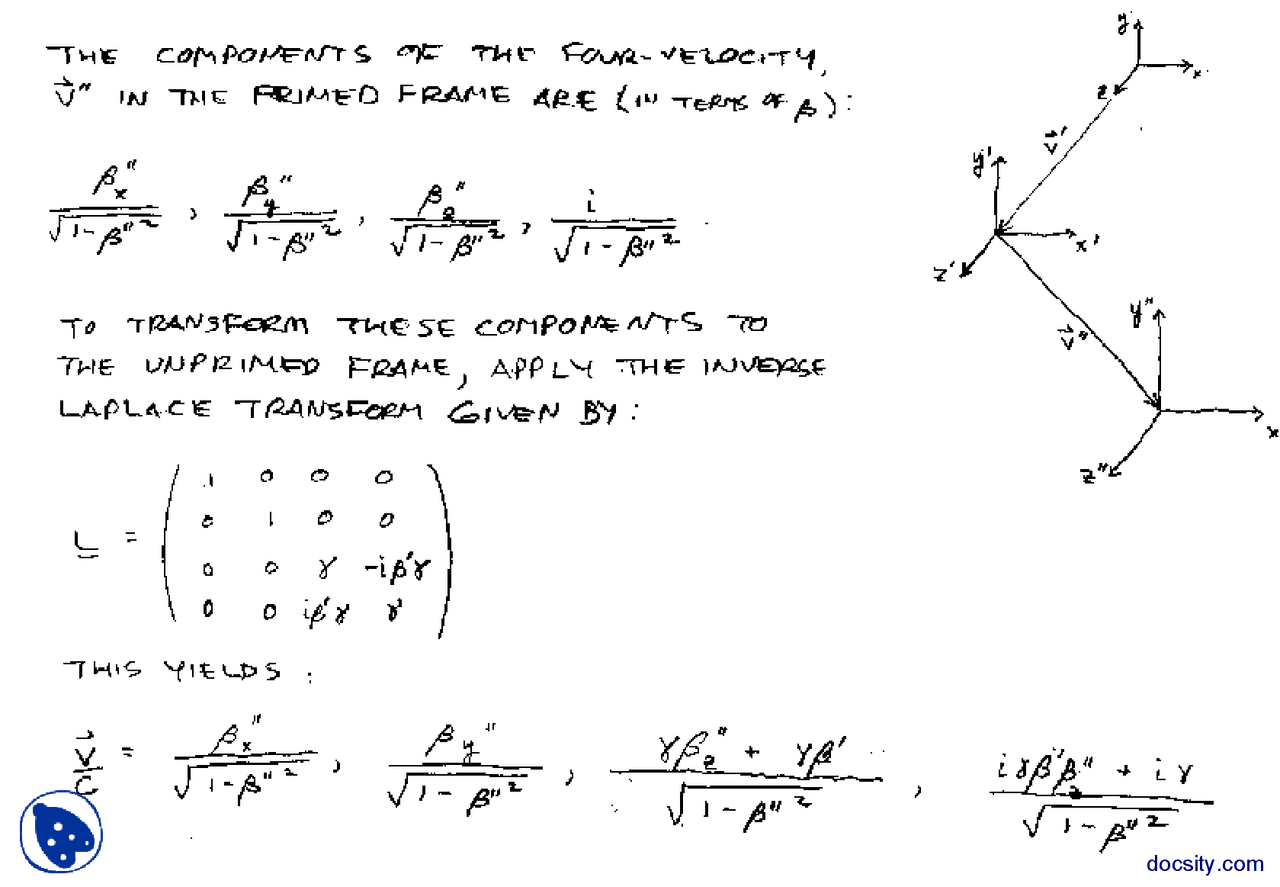 THE COMPONENTS OF THE FOUR-VELOCITY,
V⃗" IN THE PRIMED FRAME ARE (IN TERMS OF β):
βₓ" / √(1-β"²) , β_y" / √(1-β"²) , β_z" / √(1-β"²) , i / √(1-β"²) .
TO TRANSFORM THESE COMPONENTS TO
THE UNPRIMED FRAME, APPLY THE INVERSE
LAPLACE TRANSFORM GIVEN BY:
L =
1 0 0 0
0 1 0 0
0 0 γ -iβ'γ
0 0 iβ'γ γ
THIS YIELDS:
V⃗/C = βₓ" / √(1-β"²) , β_y" / √(1-β"²) , (γβ_z" + γβ') / √(1-β"²) , (iγβ'β_z" + iγ) / √(1-β"²)
y
x
z
V⃗'
y'
x'
z'
V⃗"
y"
x
z"
docsity.com